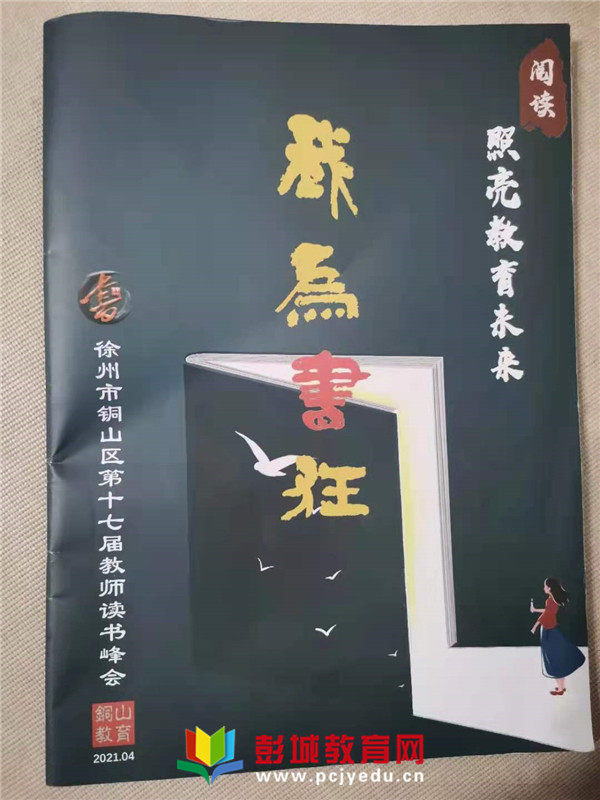 阅读
照亮教育未来
我为書狂
徐州市铜山区第十七届教师读书峰会
銅山
教育
2021.04
彭城教育网
www.pcjyedu.cn